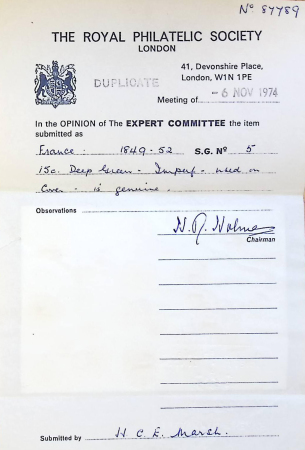 No 87789
THE ROYAL PHILATELIC SOCIETY
LONDON
41, Devonshire Place,
London, W1N 1PE
DUPLICATE
Meeting of - 6 NOV 1974
In the OPINION of The EXPERT COMMITTEE the item
submitted as
France: 1849-52 S.G. No 5
15c. Deep Green - Imperf - used on
Cover - is genuine.
Observations
Chairman
Submitted by H. C. E. March.